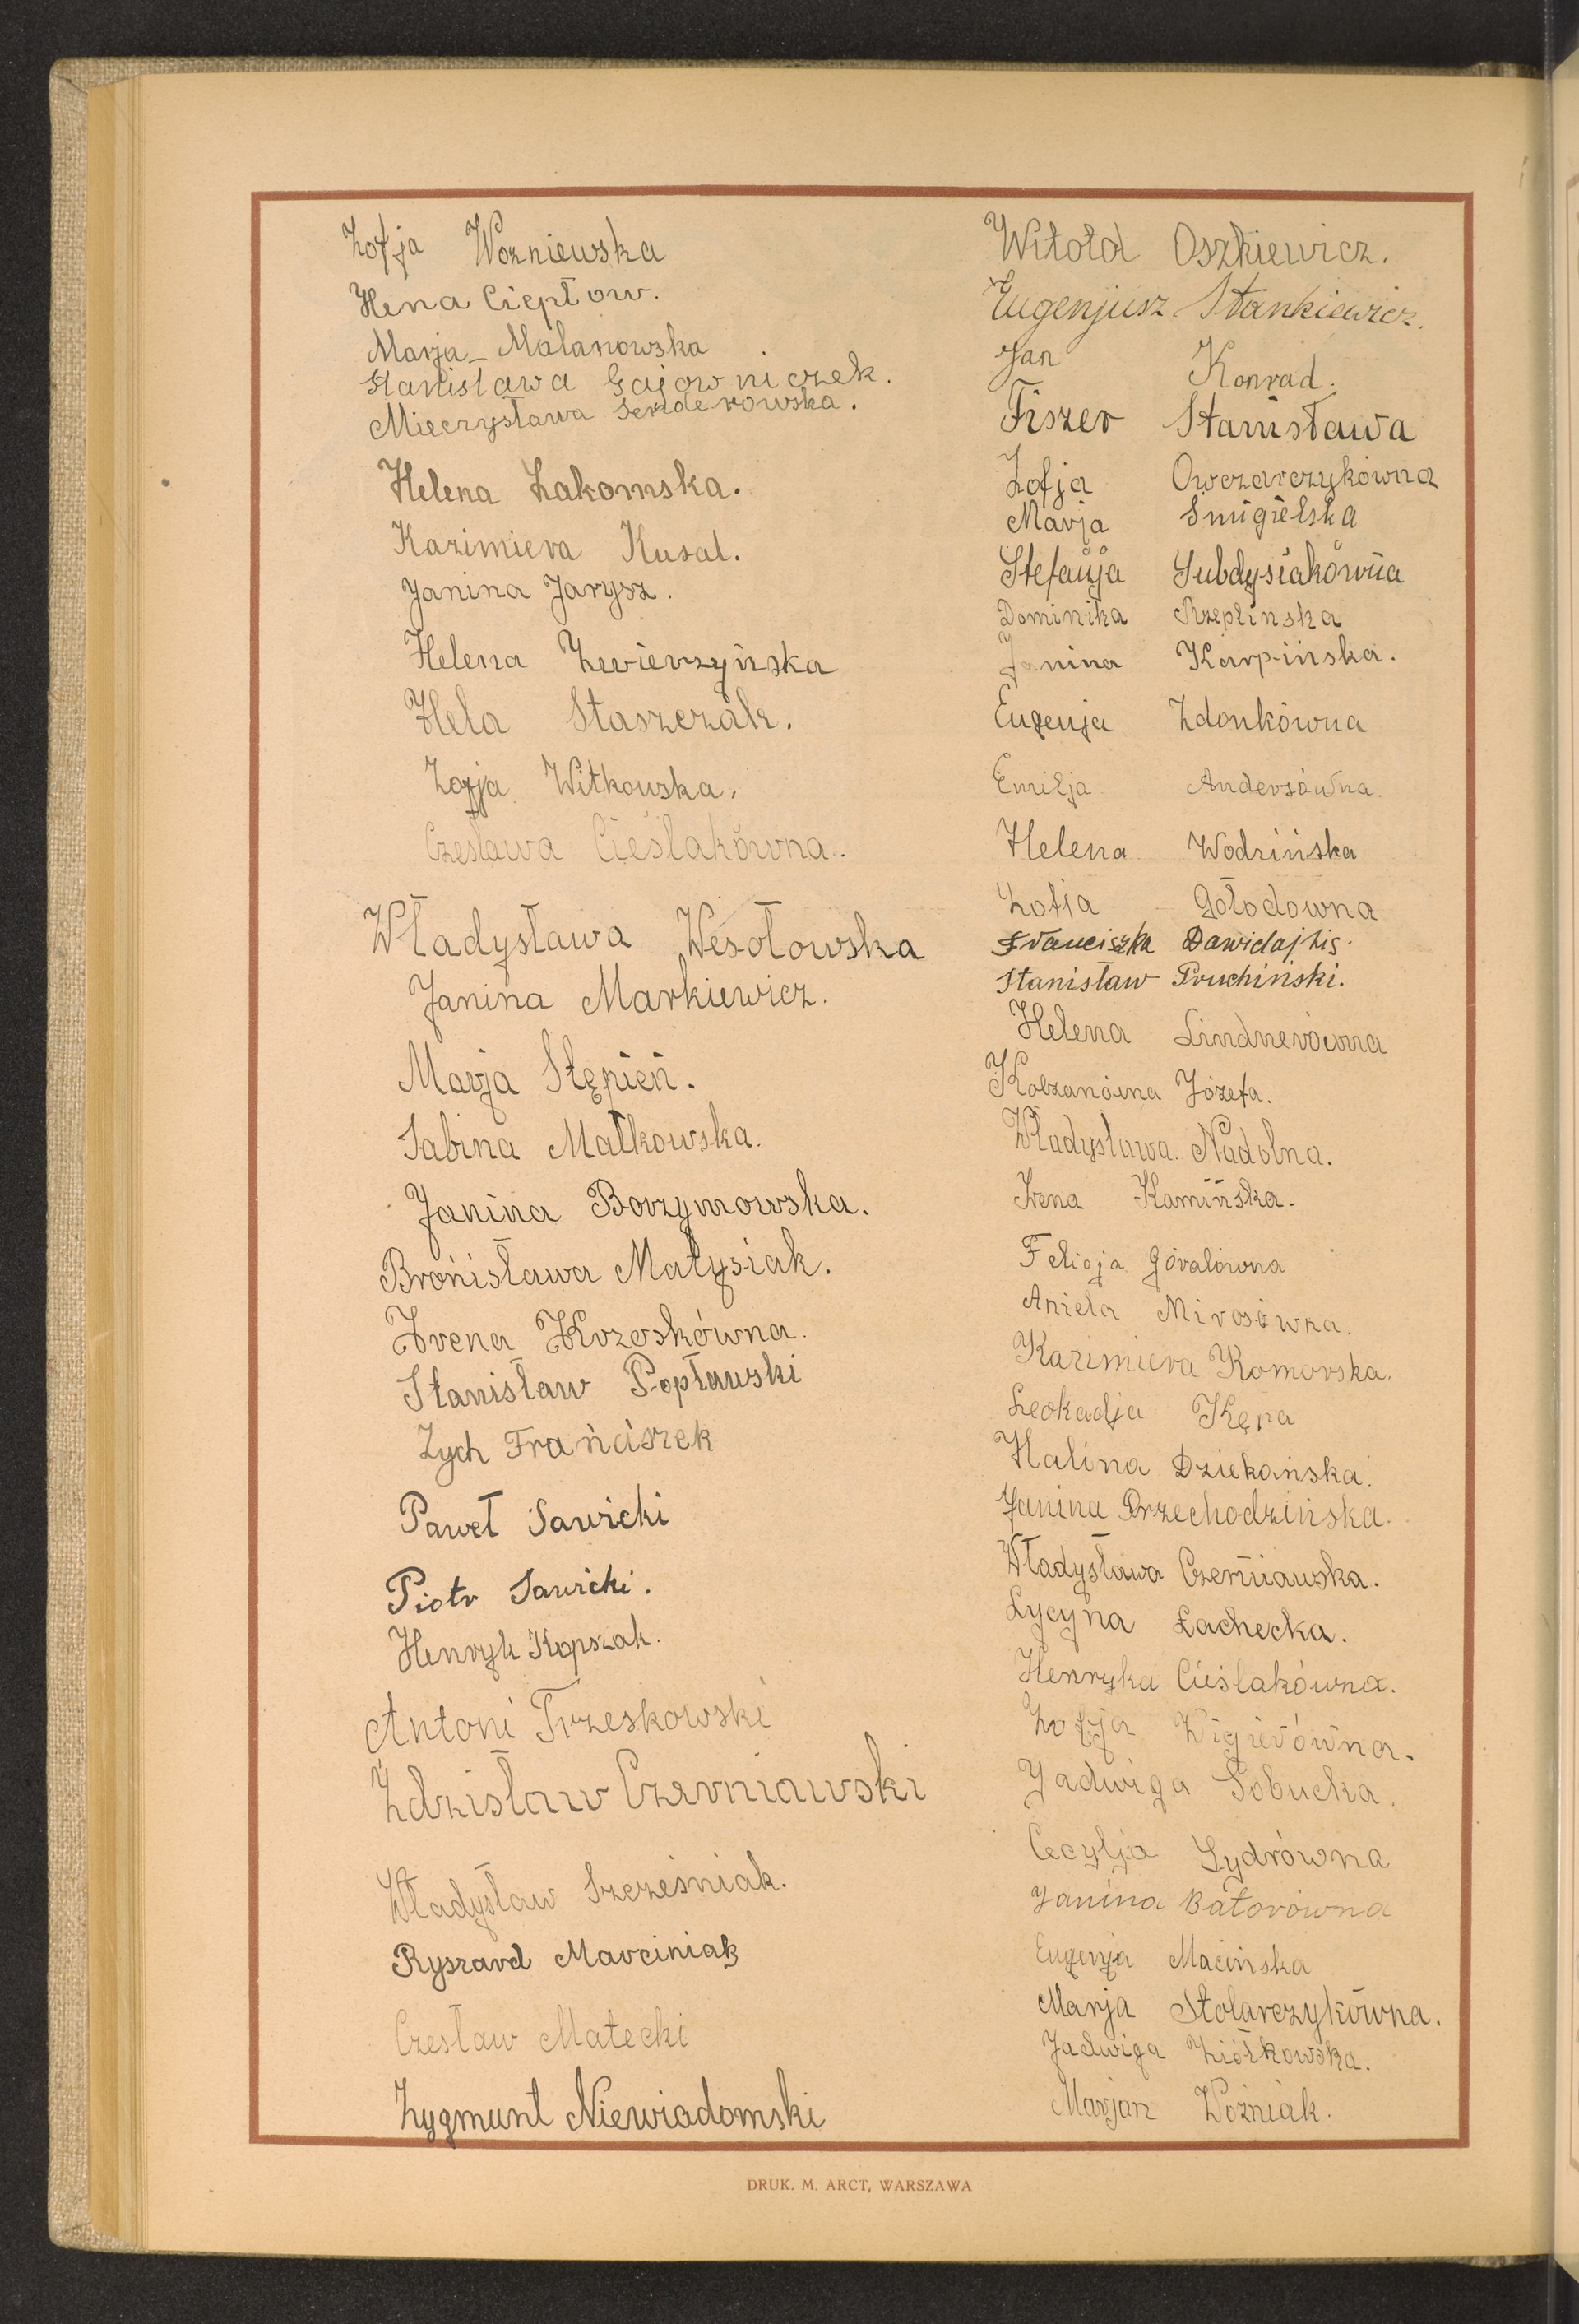 Zofja Wozniewska
Hena Ciepłow.
Marja Malanowska
Stanisława Gajowniczek.
Mieczysława Senderowska.
Helena Zakomska.
Kazimiera Kusal.
Janina Jarysz.
Helena Zwierzyńska
Hela Staszczak.
Zofja Witkowska.
Czesława Cieślakówna.
Władysława Wesołowska
Janina Markiewicz.
Marja Stępień.
Sabina Małkowska.
Janina Borzymowska.
Bronisława Matysiak.
Irena Krzoskówna.
Stanisław Popławski
Zych Franciszek
Paweł Sawicki
Piotr Sawicki.
Henryk Kopszak.
Antoni Trzeskowski
Zdzisław Czerniawski
Władysław Szcześniak.
Ryszard Marciniak
Czesław Małecki
Zygmunt Niewiadomski
Witołd Oszkiewicz.
Eugenjusz Stankiewicz.
Jan Konrad.
Fiszer Stanisława
Zofja Owczarczykówna
Marja Śmigielska
Stefanja Subdysiakówna
Dominika Rzeplinska
Janina Karpińska.
Eugenja Zdonkówna
Emilja Andersówna.
Helena Wodzińska
Zofja Gołodówna
Franciszka Dawidajtis.
Stanisław Pruchiński.
Helena Lindnerówna
Kobzanówna Józefa.
Władysława Nadolna.
Irena Kamińska.
Felicja Góralówna
Aniela Mirosówna.
Kazimiera Komorska.
Leokadja Kępa
Halina Dziekańska.
Janina Przechodzińska.
Władysława Czerniawska.
Lucyna Łachecka.
Henryka Cieślakówna.
Zofja Wigierówna.
Jadwiga Sobucka.
Cecylja Zydrówna
Janina Batorówna
Eugenja Macińska
Marja Stolarczykówna.
Jadwiga Ziółkowska.
Marjan Woźniak.
DRUK. M. ARCT, WARSZAWA